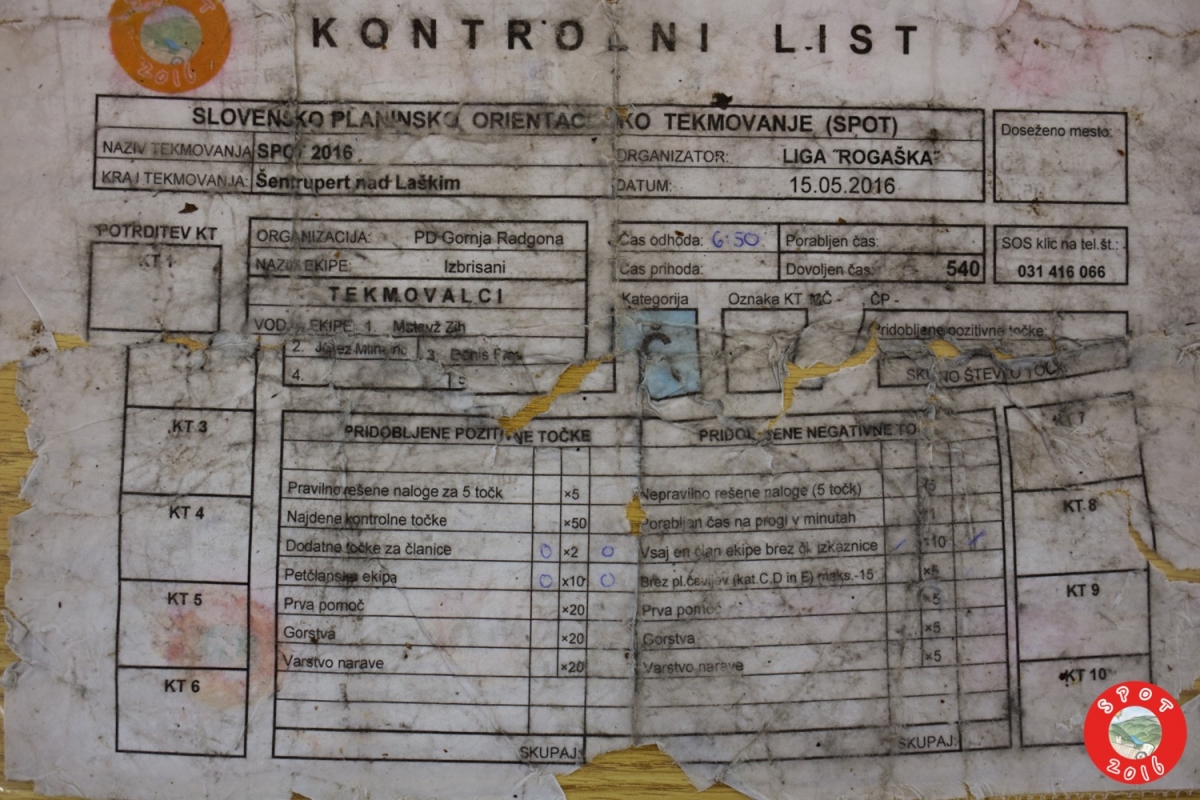 SPOT 2016
KONTROLNI LIST
SLOVENSKO PLANINSKO ORIENTACIJSKO TEKMOVANJE (SPOT)
NAZIV TEKMOVANJA SPOT 2016 ORGANIZATOR: LIGA "ROGAŠKA"
KRAJ TEKMOVANJA: Šentrupert nad Laškim DATUM: 15.05.2016
Doseženo mesto:
POTRDITEV KT
KT 1
ORGANIZACIJA: PD Gornja Radgona
NAZIV EKIPE: Izbrisani
TEKMOVALCI
VOD. EKIPE: 1.
2. 3.
4. 5
Čas odhoda: 6:50 Porabljen čas:
Čas prihoda: Dovoljen čas: 540
SOS klic na tel.št.:
031 416 066
Kategorija Oznaka KT MČ - ČP -
Č
Pridobljene pozitivne točke:
SKUPNO ŠTEVILO TOČK
KT 3
KT 4
KT 5
KT 6
PRIDOBLJENE POZITIVNE TOČKE
Pravilno rešene naloge za 5 točk ×5
Najdene kontrolne točke ×50
Dodatne točke za članice 0 ×2 0
Petčlanska ekipa 0 ×10 0
Prva pomoč ×20
Gorstva ×20
Varstvo narave ×20
SKUPAJ:
PRIDOBLJENE NEGATIVNE TO
Nepravilno rešene naloge (5 točk) ×5
Porabljen čas na progi v minutah
Vsaj en član ekipe brez čl. izkaznice / ×10 /
Brez pl.čevljev (kat.C,D in E) maks.-15 ×5
Prva pomoč ×5
Gorstva ×5
Varstvo narave ×5
SKUPAJ:
KT 7
KT 8
KT 9
KT 10
SPOT 2016